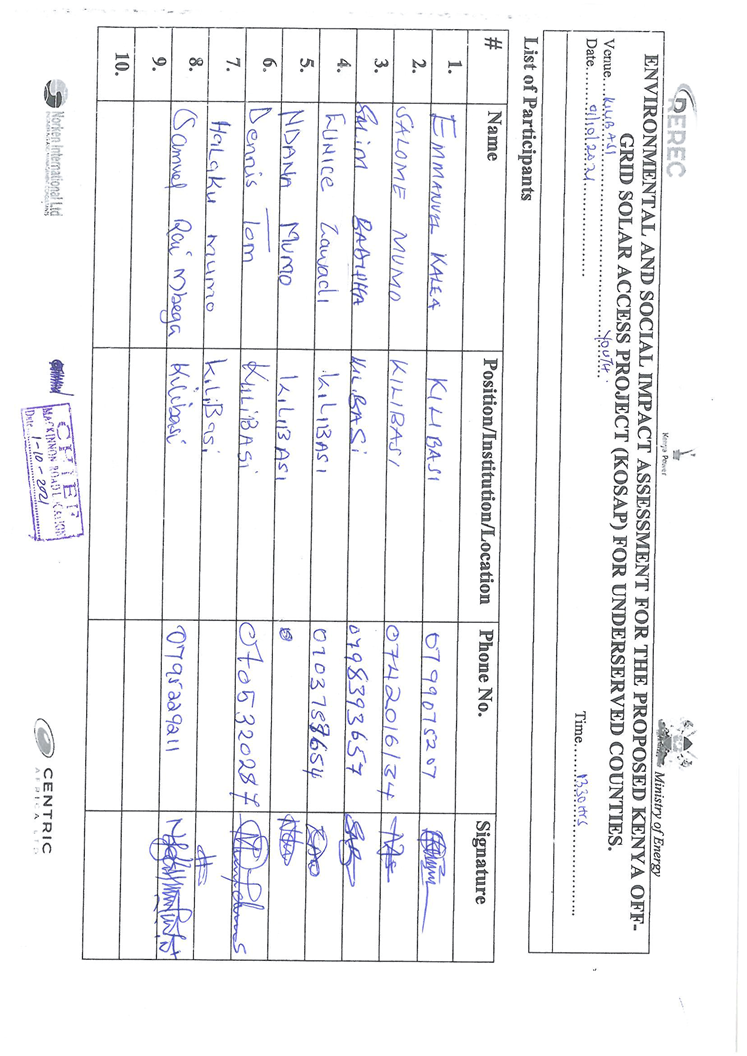 REREC
Kenya Power
Ministry of Energy
ENVIRONMENTAL AND SOCIAL IMPACT ASSESSMENT FOR THE PROPOSED KENYA OFF-
GRID SOLAR ACCESS PROJECT (KOSAP) FOR UNDERSERVED COUNTIES.
Venue....KILIBASI..........YOUTH.......... Time......1330HRS..........
Date....01/10/2021..........
List of Participants
# Name Position/Institution/Location Phone No. Signature
1. EMMANUEL KALEA KILIBASI 0799075207
2. SALOME MUMO KILIBASI 0742016134
3. SALIM KILIBASI 0798393657
4. EUNICE Zawadi KILIBASI
5. NDANA MUMO KILIBASI
6. Dennis Tom KILIBASI 0705320287
7. HALAKU MUMO KILIBASI
8. Samuel Rai Mbega Kilibasi 0795229211
9.
10.
Norken International Ltd
ENVIRONMENTAL MANAGEMENT CONSULTANTS
CHIEF
MACKINNON ROAD LOCATION
Date 1-10-2021
CENTRIC
AFRICA LTD